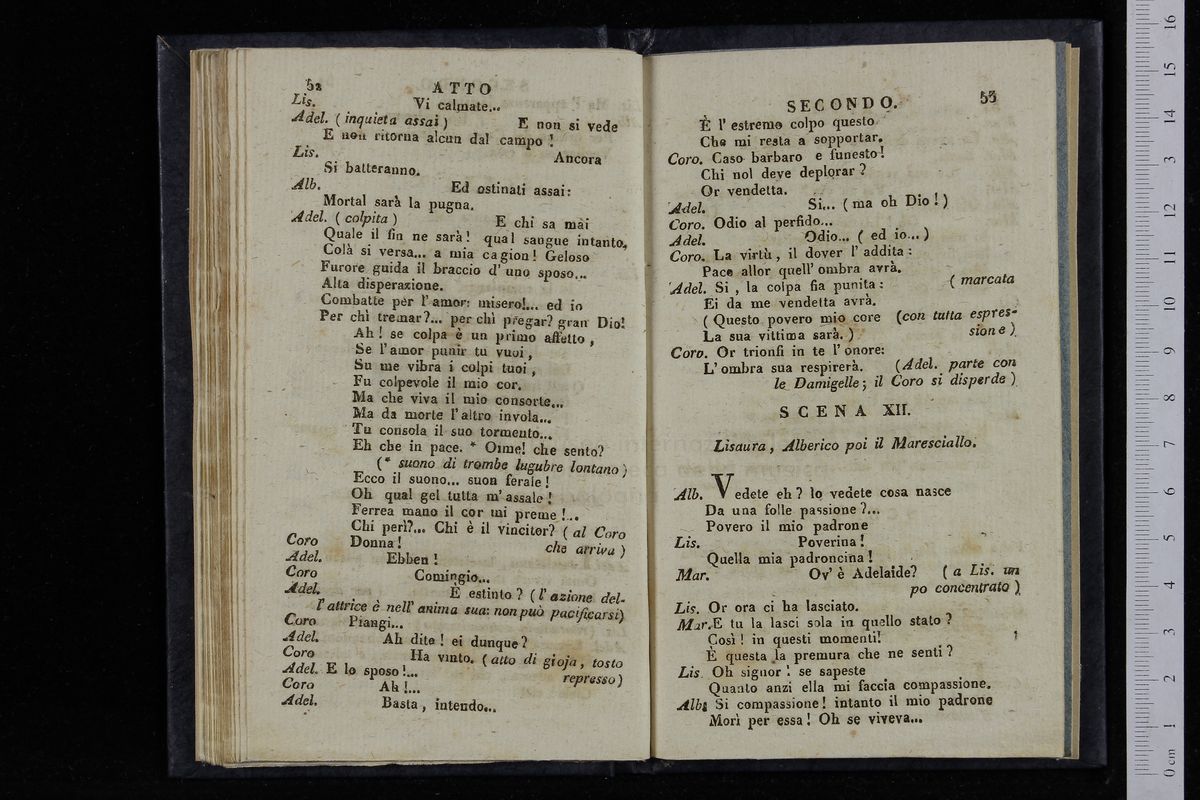 52 ATTO
Lis. Vi calmate...
Adel. ( inquieta assai ) E non si vede
E non ritorna alcun dal campo !
Lis. Ancora
Si batteranno.
Alb. Ed ostinati assai:
Mortal sarà la pugna.
Adel. ( colpita ) E chi sa mai
Quale il fin ne sarà! qual sangue intanto,
Colà si versa... a mia cagion! Geloso
Furore guida il braccio d' uno sposo...
Alta disperazione.
Combatte per l' amor: misero!... ed io
Per chi tremar?... per chi pregar? gran Dio!
Ah! se colpa è un primo affetto ,
Se l' amor punir tu vuoi ,
Su me vibra i colpi tuoi ,
Fu colpevole il mio cor.
Ma che viva il mio consorte...
Ma da morte l' altro invola...
Tu consola il suo tormento...
Eh che in pace. * Oime! che sento?
(* suono di trombe lugubre lontano )
Ecco il suono... suon ferale !
Oh qual gel tutta m' assale !
Ferrea mano il cor mi preme !...
Chi perì?... Chi è il vincitor? ( al Coro
Coro Donna! che arriva )
Adel. Ebben !
Coro Comingio...
Adel. È estinto ? (l' azione del-
l' attrice è nell' anima sua: non può pacificarsi)
Coro Piangi...
Adel. Ah dite ! ei dunque ?
Coro Ha vinto. (atto di gioja, tosto
Adel. E lo sposo !... represso)
Coro Ah !...
Adel. Basta , intendo...
SECONDO. 53
È l' estremo colpo questo
Che mi resta a sopportar.
Coro. Caso barbaro e funesto !
Chi nol deve deplorar ?
Or vendetta.
Adel. Si... ( ma oh Dio ! )
Coro. Odio al perfido...
Adel. Odio... ( ed io... )
Coro. La virtù , il dover l' addita :
Pace allor quell' ombra avrà.
Adel. Si , la colpa fia punita : ( marcata
Ei da me vendetta avrà.
( Questo povero mio core (con tutta espres-
La sua vittima sarà. ) sione )
Coro. Or trionfi in te l' onore:
L' ombra sua respirerà. (Adel. parte con
le Damigelle ; il Coro si disperde )
SCENA XII.
Lisaura , Alberico poi il Maresciallo.
Alb. Vedete eh ? lo vedete cosa nasce
Da una folle passione ?...
Povero il mio padrone
Lis. Poverina !
Quella mia padroncina !
Mar. Ov' è Adelaide? ( a Lis. un
po concentrato )
Lis. Or ora ci ha lasciato.
Mar. E tu la lasci sola in quello stato ?
Così ! in questi momenti!
È questa la premura che ne senti ?
Lis Oh signor ! se sapeste
Quanto anzi ella mi faccia compassione.
Alb. Si compassione ! intanto il mio padrone
Morì per essa ! Oh se viveva...
0 cm 1 2 3 4 5 6 7 8 9 10 11 12 13 14 15 16